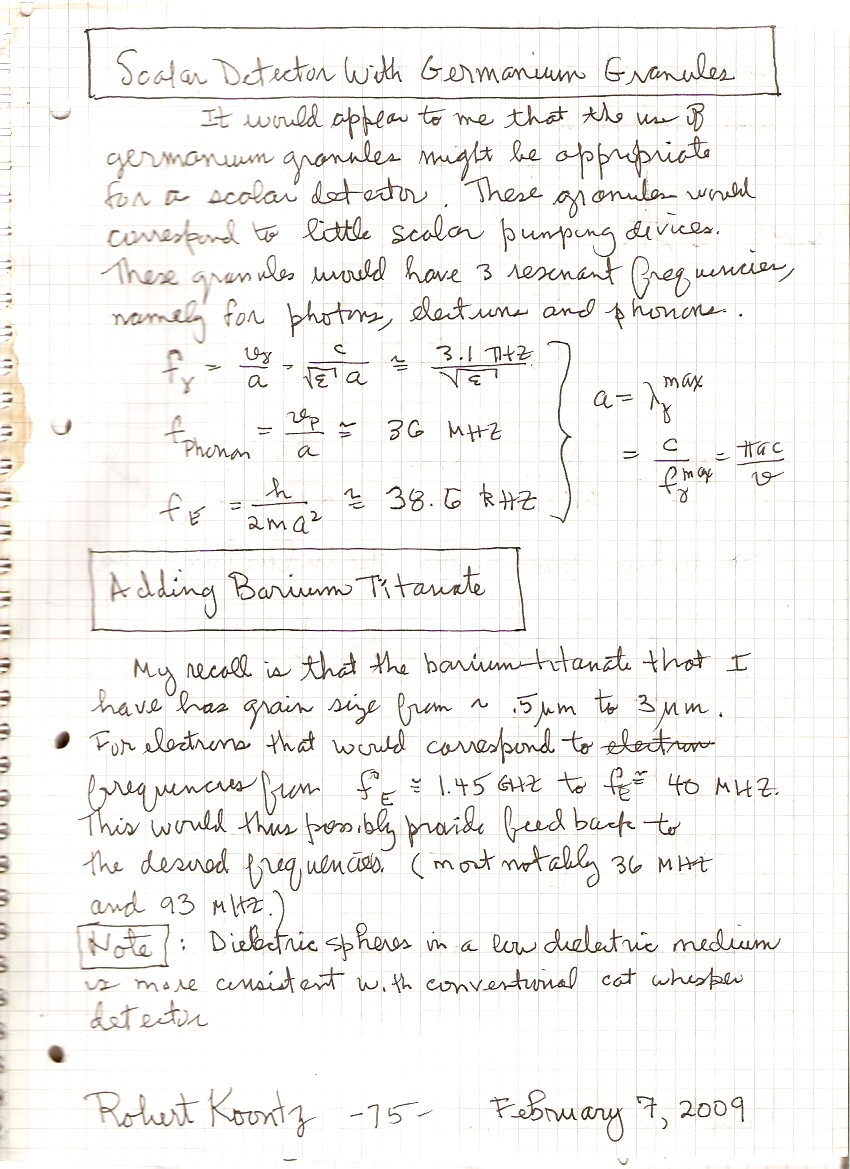 Scalar Detector With Germanium Granules
It would appear to me that the use of
germanium granules might be appropriate
for a scalar detector. These granules would
correspond to little scalar pumping devices.
These granules would have 3 resonant frequencies,
namely for photons, electrons and phonons.
f_γ = v_γ/a = c/(√ε a) ≅ 3.1 THZ/√ε
a = λ_γ^max
f_Phonon = v_p/a ≅ 36 MHZ
= c/f_γ^max = πac/v
f_E = h/(2ma²) ≅ 38.6 kHZ
Adding Barium Titanate
My recall is that the barium titanate that I
have has grain size from ~ .5 µm to 3 µm.
For electrons that would correspond to electron
frequencies from f_E ≅ 1.45 GHZ to f_E ≅ 40 MHZ.
This would thus possibly provide feed back to
the desired frequencies. (most notably 36 MHZ
and 93 MHZ.)
Note: Dielectric spheres in a low dielectric medium
is more consistent with conventional cat whisper
detector
Robert Koontz -75- February 7, 2009